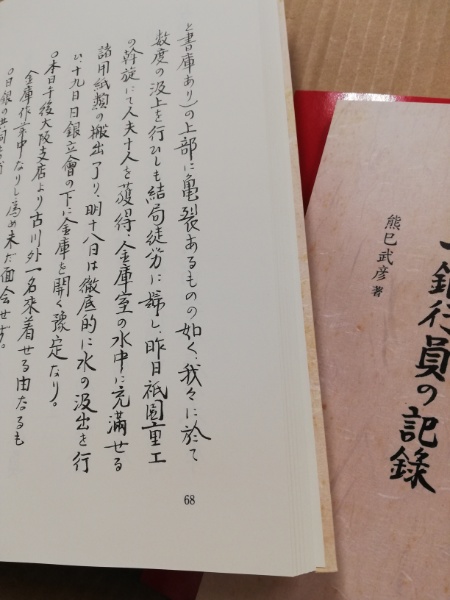 と書庫あり)の上部に亀裂あるものの如く、我々に於て
数度の汲上を行ひしも結局徒労に帰し、昨日祇園重工
の幹旋にて人夫十人を獲得、金庫室の水中に充満せる
諸用紙類の搬出了り、明十八日は徹底的に水の汲出を行
ひ、十九日日銀立會の下に金庫を開く豫定なり。
○本日午後大阪支店より古川外一名来着せる由なるも
金庫作業中なりし為め未だ面会せず。
○日銀の
68
一銀行員の記録
熊巳武彦 著